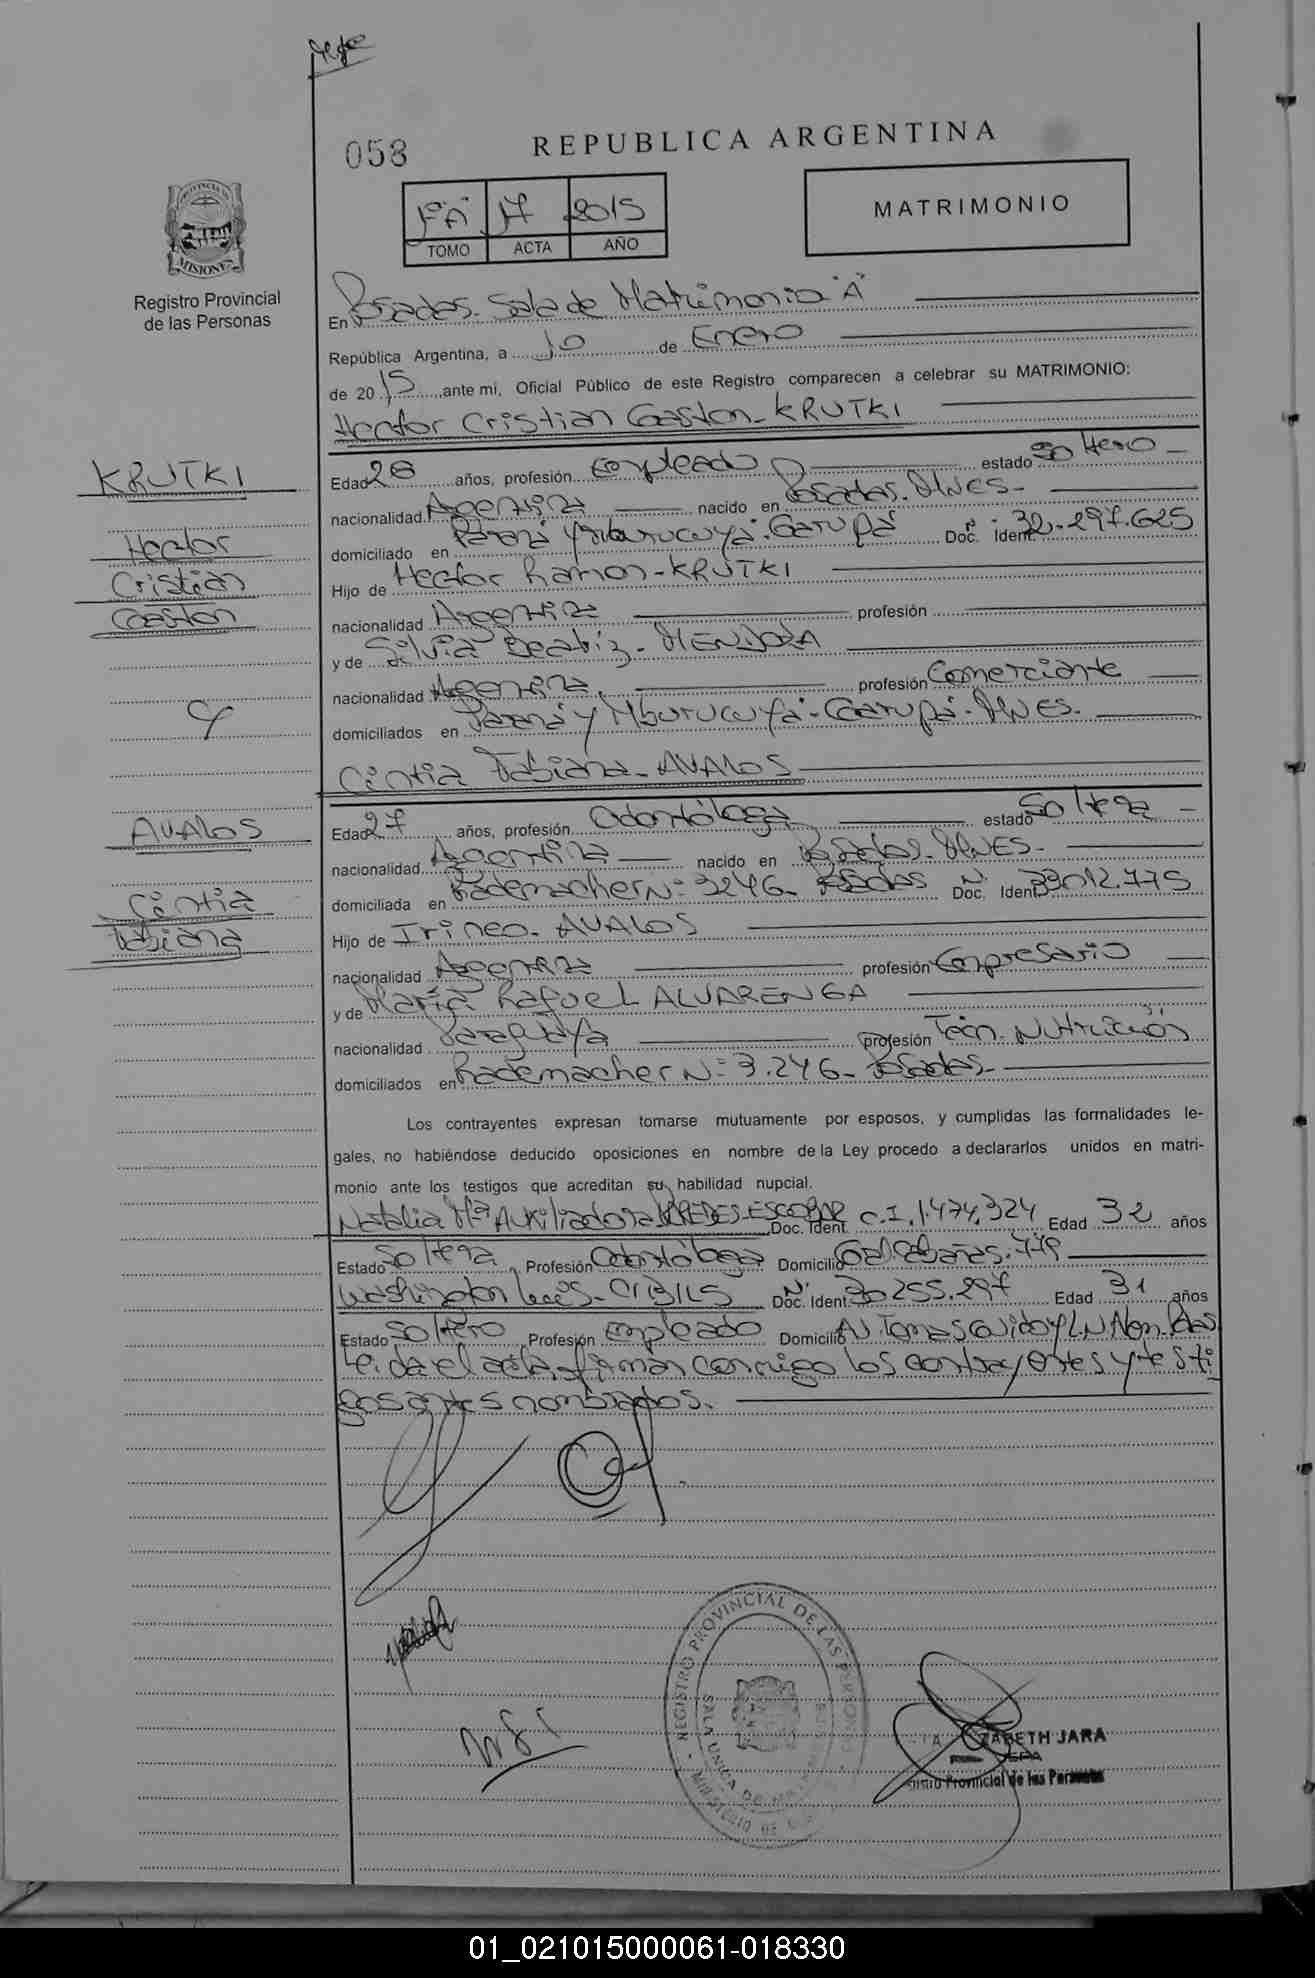 058
REPUBLICA ARGENTINA
MATRIMONIO
1º"A" 17 2015
TOMO ACTA AÑO
PROVINCIA DE
MISIONES
Registro Provincial
de las Personas
En Posadas. Sala de Matrimonio "A"
República Argentina, a 10 de Enero
de 2015 ante mi, Oficial Público de este Registro comparecen a celebrar su MATRIMONIO:
Hector Cristian Gaston - KRUTKI
KRUTKI
Hector
Cristian
Gaston
Edad 28 años, profesión Empleado estado Soltero
nacionalidad Argentina nacido en Posadas. Mnes.
domiciliado en Paraná y Mburucuyá. Garupá Doc. Ident. Nº 32.297.625
Hijo de Hector Ramon - KRUTKI
nacionalidad Argentina profesión
y de Silvia Beatriz - MENDOZA
nacionalidad Argentina profesión Comerciante
domiciliados en Paraná y Mburucuyá - Garupá - Mnes.
Cintia Fabiana - AVALOS
y
AVALOS
Cintia
Fabiana
Edad 27 años, profesión Odontóloga estado Soltera
nacionalidad Argentina nacido en Posadas. Mnes.
domiciliada en Rademacher Nº 3246 - Posadas Doc. Ident. Nº 33012.775
Hijo de Irineo - AVALOS
nacionalidad Argentina profesión Empresario
y de María Raquel ALVARENGA
nacionalidad Paraguaya profesión Técn. Nutrición
domiciliados en Rademacher Nº 3.246 - Posadas
Los contrayentes expresan tomarse mutuamente por esposos, y cumplidas las formalidades le-
gales, no habiéndose deducido oposiciones en nombre de la Ley procedo a declararlos unidos en matri-
monio ante los testigos que acreditan su habilidad nupcial.
Natalia Mª Auxiliadora PAREDES ESCOBAR Doc. Ident. C.I. 1.474.324 Edad 32 años
Estado Soltera Profesión Odontóloga Domicilio Gral Cabañas. 779
Washington Luis - CIBILS Doc. Ident. Nº 30255.297 Edad 31 años
Estado Soltero Profesión Empleado Domicilio Av Tomas Guido y L N Alen. Pdas
Leida el acta, firman conmigo los contrayentes y testi
gos antes nombrados.
REGISTRO PROVINCIAL DE LAS PERSONAS
SALA UNICA DE
MINISTERIO DE
JARA
Provincial de las Personas
01_021015000061-018330